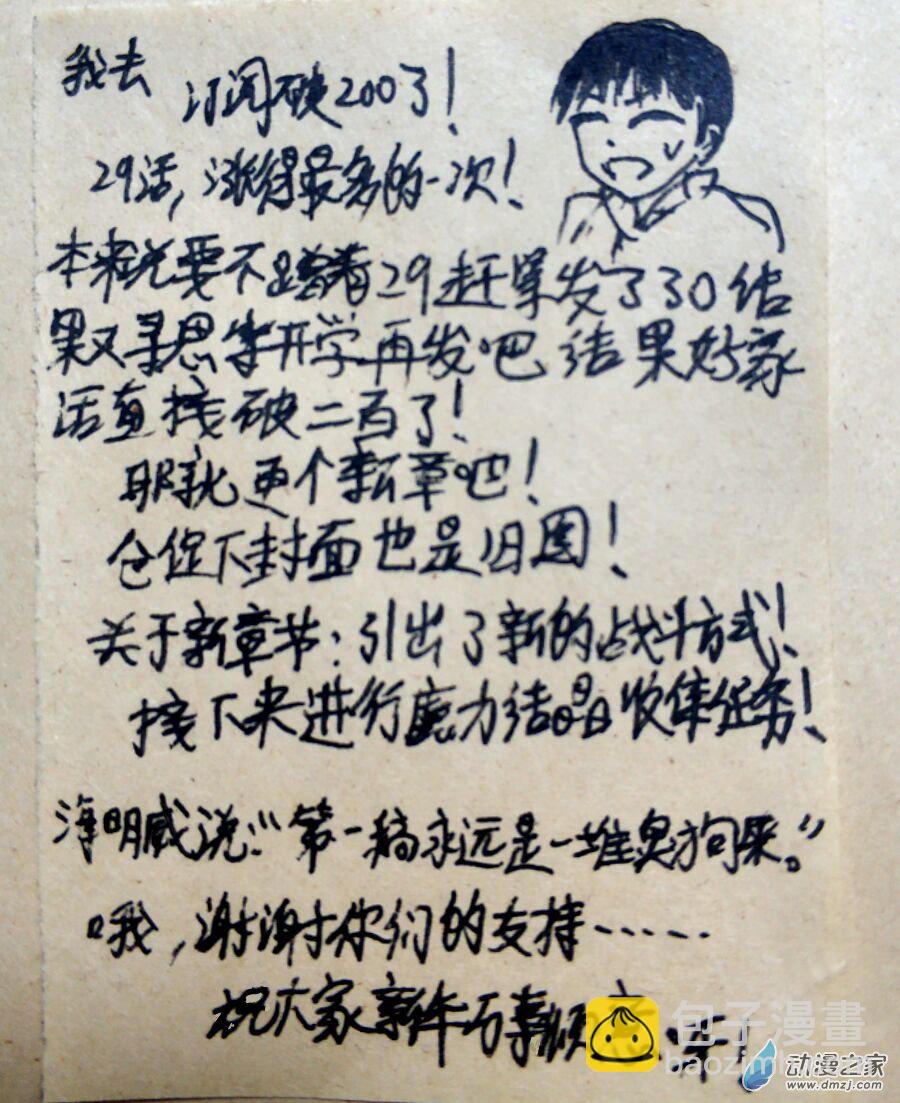 我去
订阅破200了!
29话,涨得最多的一次!
本来说要不蹭着29赶紧发了30结
果又寻思等开学再发吧 结果好家
活直接破二百了!
那就更个新章吧!
仓促下封面也是旧图!
关于新章节:引出了新的战斗方式!
接下来进行魔力结晶收集任务!
海明威说:“第一稿永远是一堆臭狗屎。”
哦,谢谢你们的支持……
祝大家新年万事顺
包子漫畫
baozimh
动漫之家
www.dmzj.com